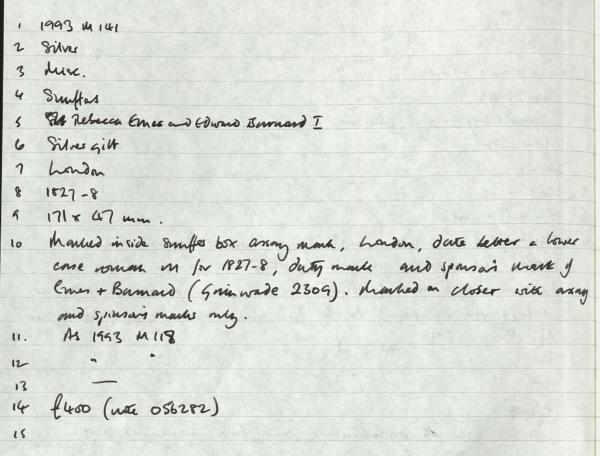 1 1993 M 141
2 Silver
3 Misc.
4 Snuffers
5 Rebecca Emes and Edward Barnard I
6 Silver gilt
7 London
8 1827-8
9 171 x 47 mm.
10 Marked inside snuffer box assay mark, London, date letter a lower
case roman m for 1827-8, duty mark and sponsor's mark of
Emes + Barnard (Grimwade 2309). Marked on closer with assay
and sponsor's marks only.
11. As 1993 M 118
12 " "
13 —
14 £400 (note 056282)
15